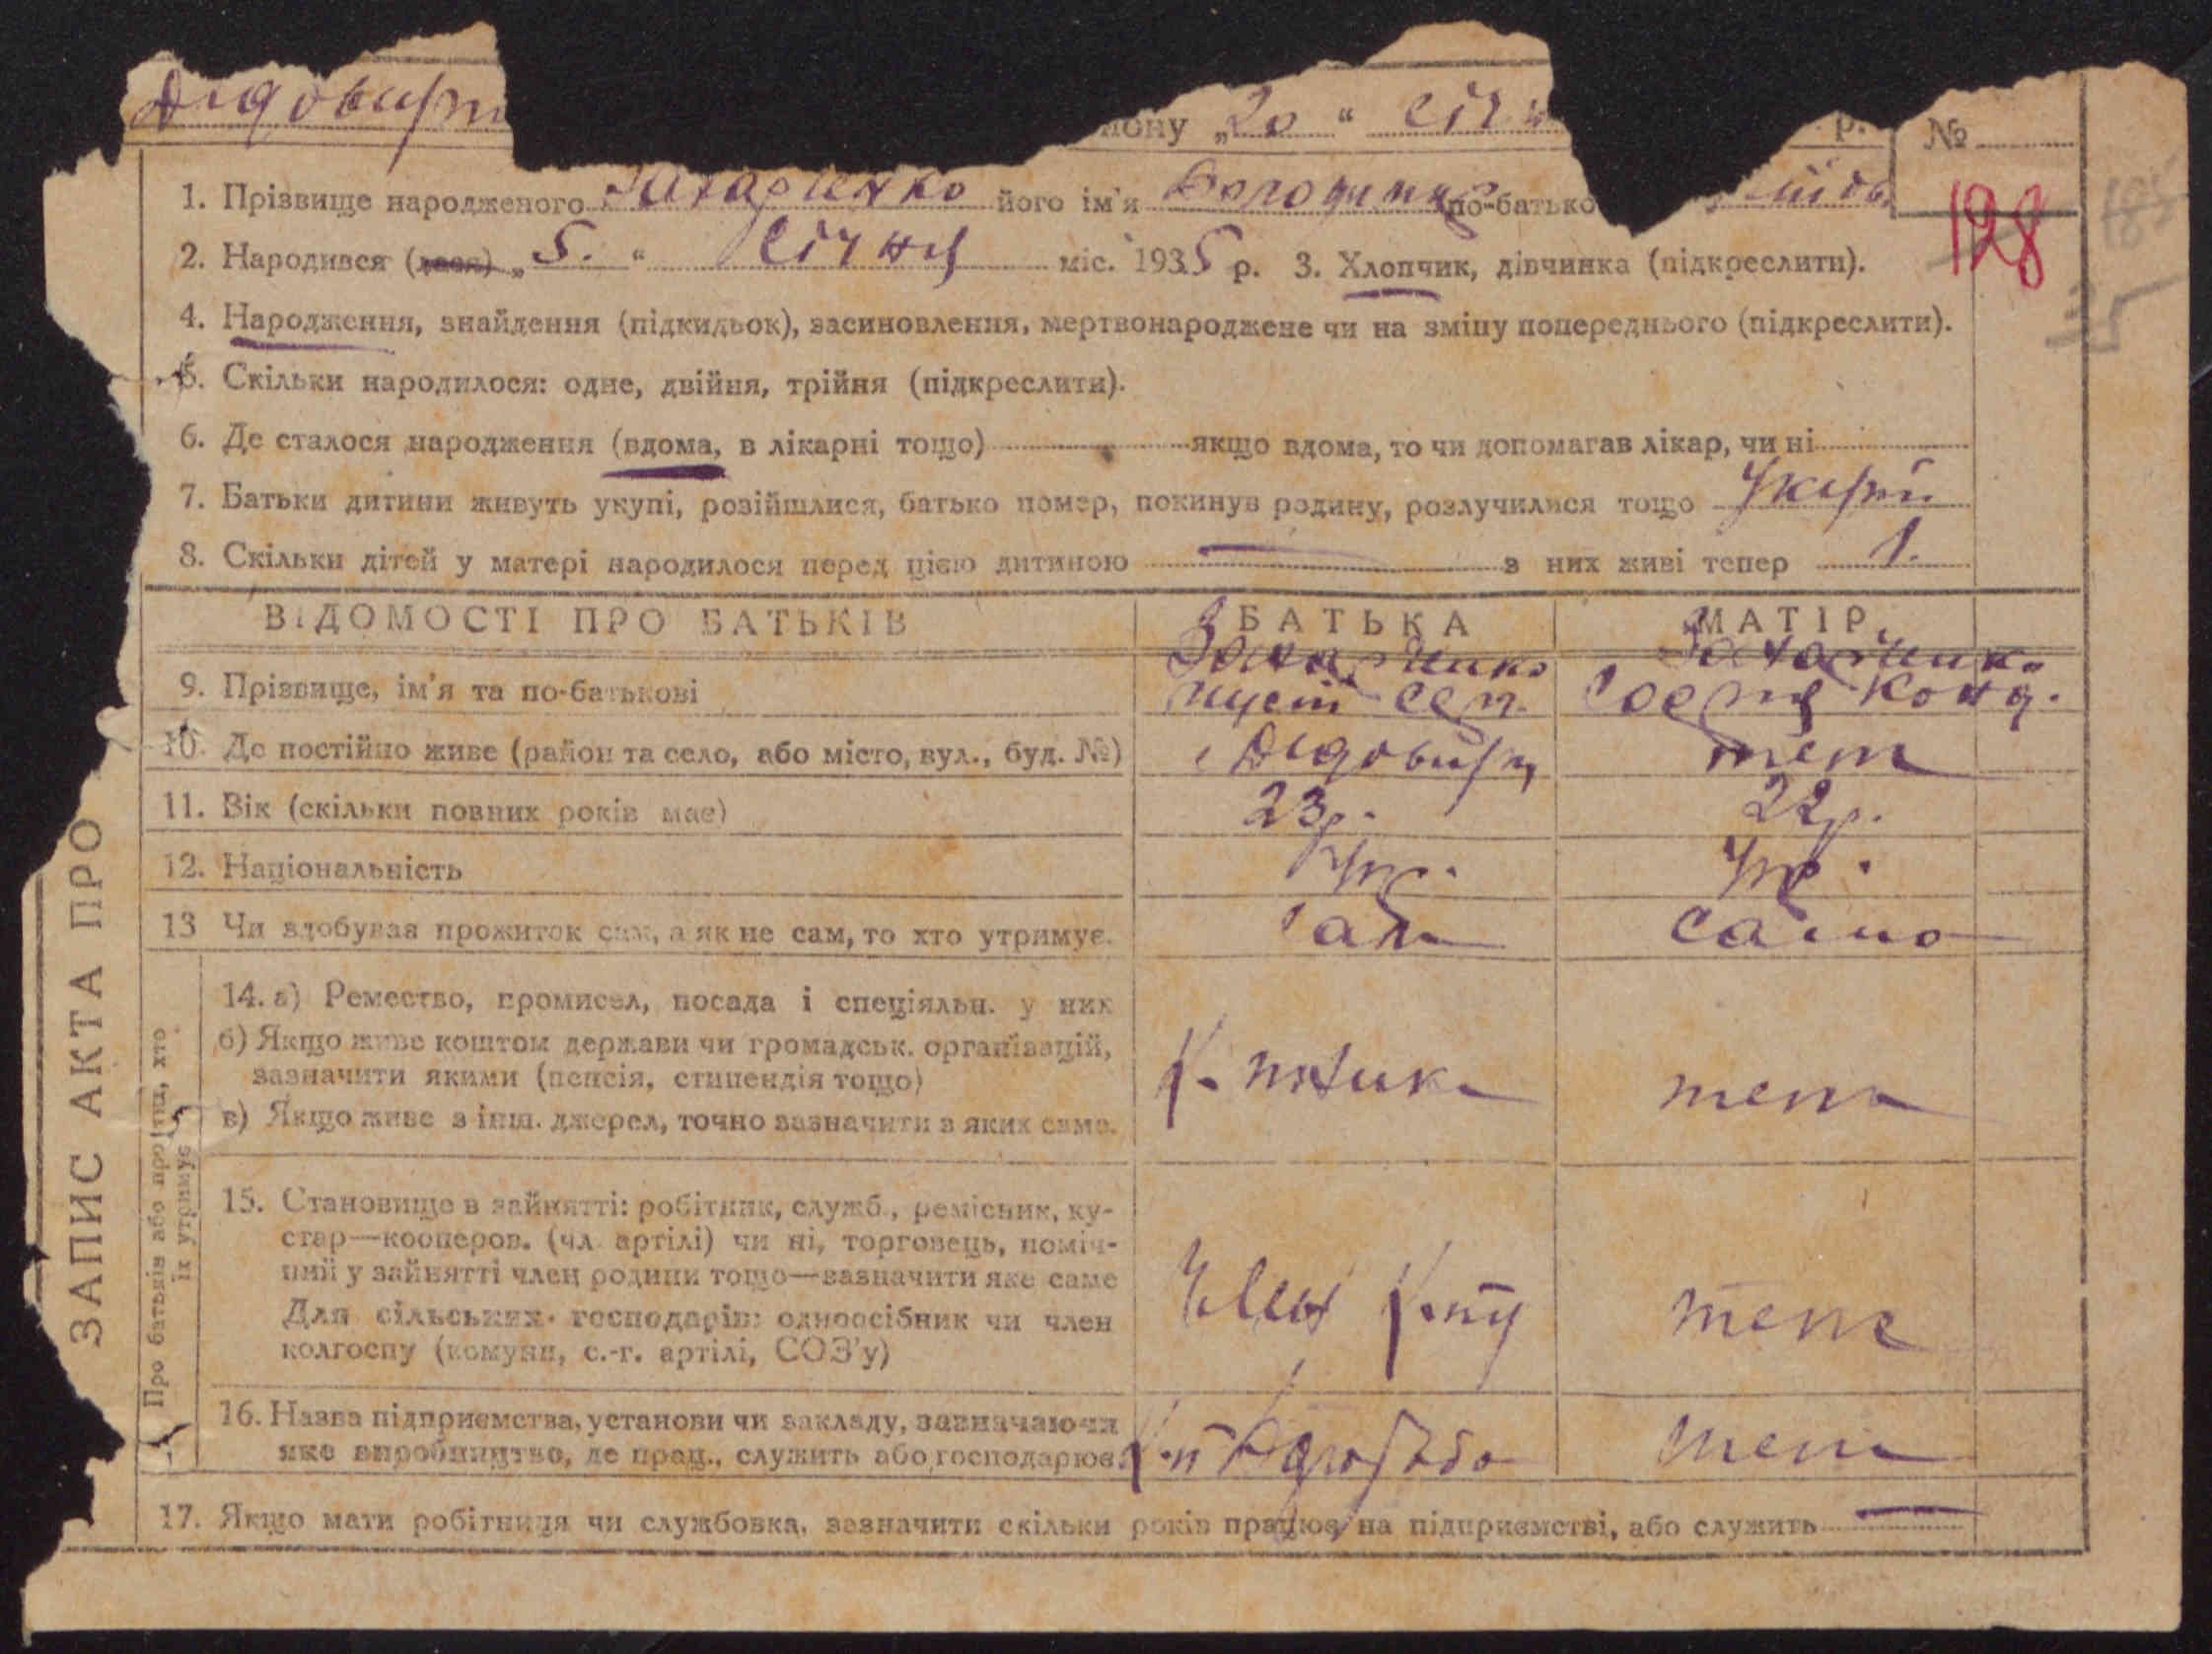 йону „20 “ січн р. №
1. Прізвище народженого Захарченко його ім'я Володимир по-батько
128
2. Народився (лася) „5. “ Січня міс. 1935 р. 3. Хлопчик, дівчинка (підкреслити).
4. Народження, знайдення (підкидьок), засиновлення, мертвонароджене чи на зміну попереднього (підкреслити).
5. Скільки народилося: одне, двійня, трійня (підкреслити).
6. Де сталося народження (вдома, в лікарні тощо) якщо вдома, то чи допомагав лікар, чи ні
7. Батьки дитини живуть укупі, розійшлися, батько помер, покинув родину, розлучилися тощо Укупі
8. Скільки дітей у матері народилося перед цією дитиною — з них живі тепер 1.
ВІДОМОСТІ ПРО БАТЬКІВ БАТЬКА МАТІР
9. Прізвище, ім'я та по-батькові Захарченко Захарченко
10. Де постійно живе (район та село, або місто, вул., буд. №) теж
11. Вік (скільки повних років має) 23р. 22р.
12. Національність Укр. Укр.
13 Чи здобував прожиток сам, а як не сам, то хто утримує. Сам Само
14. а) Ремество, промисел, посада і спеціяльн. у них
б) Якщо живе коштом держави чи громадськ. організацій,
зазначити якими (пенсія, стипендія тощо)
в) Якщо живе з інш. джерел, точно зазначити з яких саме.
15. Становище в зайнятті: робітник, служб., ремісник, ку-
стар—кооперов. (чл. артілі) чи ні, торговець, поміч-
ний у зайнятті член родини тощо—зазначити яке саме
Для сільських господарів: одноосібник чи член
колгоспу (комуни, с.-г. артілі, СОЗ'у)
Член
16. Назва підприємства, установи чи закладу, зазначаючи
яке виробництво, де прац., служить або господарює
17. Якщо мати робітниця чи службовка, зазначити скільки років працює на підприємстві, або служить —
ЗАПИС АКТА ПРО
Про батьків або про тих, хто
їх утримує